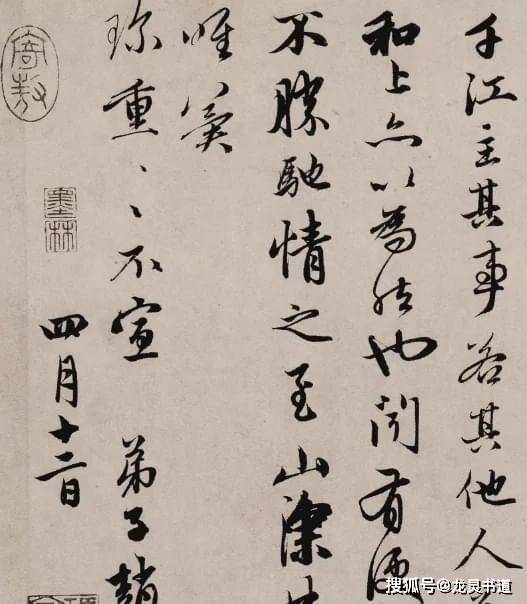 千江主其事若其他人
和上亦以為然也聞有便
不勝馳情之至山深
唯冀
珍重〻不宣 弟子趙
四月十二日
寄敖
墨林
搜狐号@龙灵书道